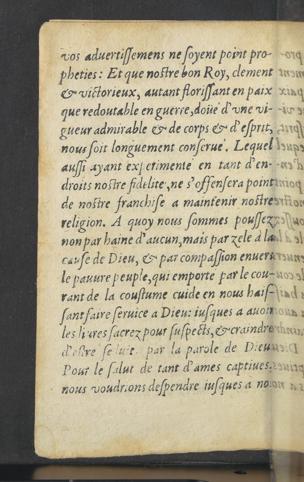 vos advertissemens ne soyent point pro-
pheties: Et que nostre bon Roy, clement
& victorieux, autant florissant en paix
que redoutable en guerre, doüé d'vne vi-
gueur admirable & de corps & d'esprit,
nous soit longuement conserué. Lequel
aussi ayant experimenté en tant d'en-
droits nostre fidelité, ne s'offensera point
de nostre franchise a maintenir nostre
religion. A quoy nous sommes poussez
non par haine d'aucun, mais par zele a la
cause de Dieu, & par compassion enuers
le pauure peuple, qui emporté par le cou-
rant de la coustume cuide en nous haïs-
sant faire seruice a Dieu: iusques a auoir
les liures sacrez pour suspects, & craindre
d'estre par la parole de Dieu
Pour le salut de tant d'ames captiues,
nous voudrions despendre iusques a no